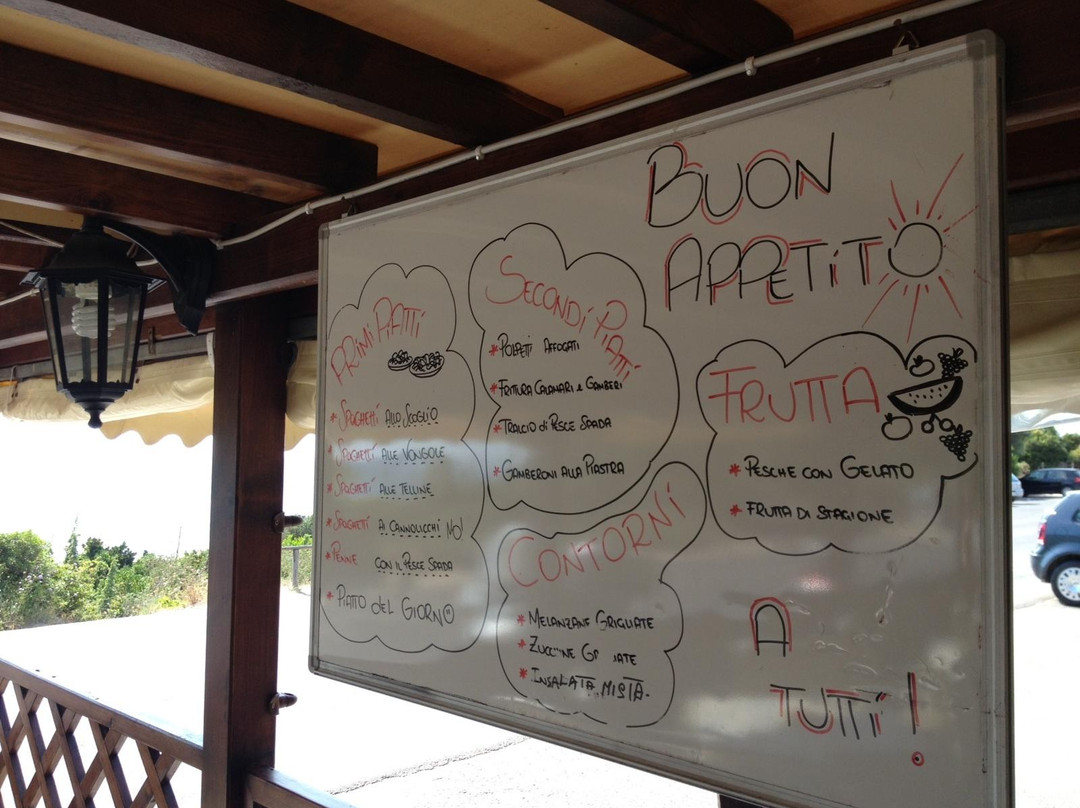 BUON
APPETITO
PRIMI PIATTI
* SPAGHETTI ALLO SCOGLIO
* SPAGHETTI ALLE VONGOLE
* SPAGHETTI ALLE TELLINE
* SPAGHETTI AI CANNOLICCHI NO!
* PENNE CON IL PESCE SPADA
* PIATTO DEL GIORNO
SECONDI PIATTI
* POLPETTI AFFOGATI
* FRITTURA CALAMARI e GAMBERI
* TRALCIO di PESCE SPADA
* GAMBERONI ALLA PIASTRA
CONTORNI
* MELANZANE GRIGLIATE
* INSALATA MISTA
FRUTTA
* PESCHE CON GELATO
* FRUTTA DI STAGIONE
A
TUTTI!